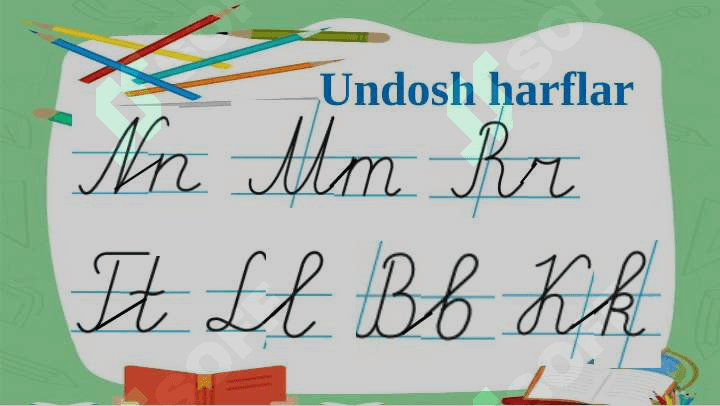 Undosh harflar
Nn Mm Rr
Tt Ll Bb Kk